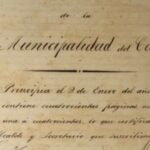 de la
Municipalidad del
Principia el 2 de Enero del año
contiene cuatrocientas páginas
una á cuatrocientos, lo que certifica
Alcalde y Secretario que suscriben